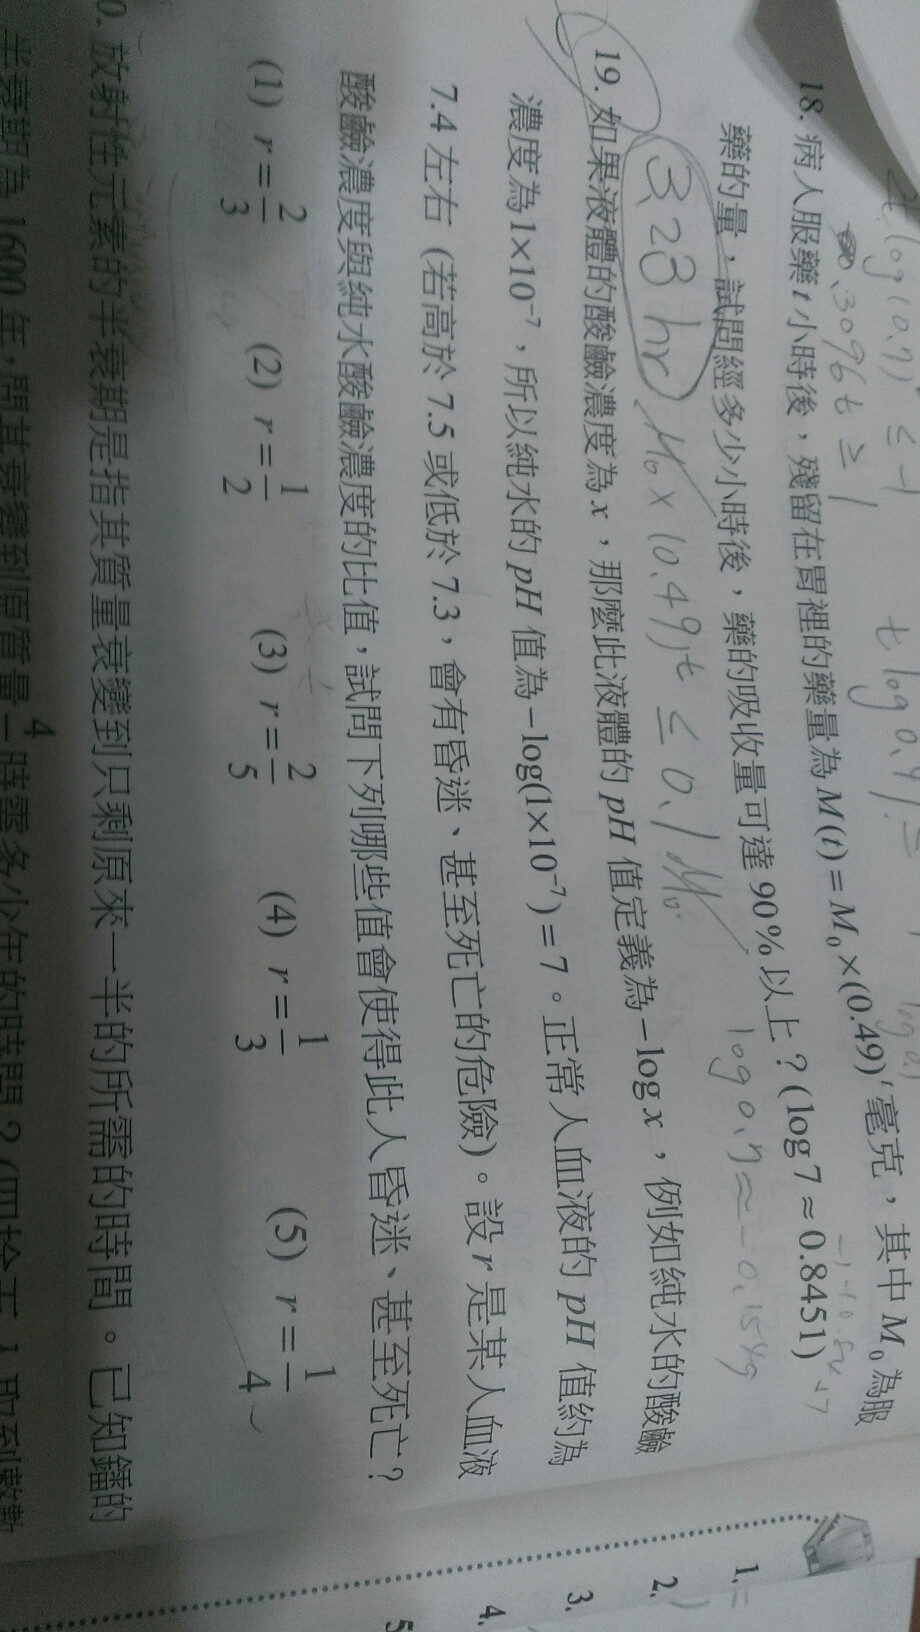 18. 病人服藥 t 小時後，殘留在胃裡的藥量為 M(t)=M₀×(0.49)ᵗ 毫克，其中 M₀ 為服
藥的量，試問經多少小時後，藥的吸收量可達 90% 以上？(log7≈0.8451)
3.23 hr M₀×(0.49)ᵗ ≤ 0.1M₀.
19. 如果液體的酸鹼濃度為 x，那麼此液體的 pH 值定義為 −log x，例如純水的酸鹼
濃度為 1×10⁻⁷，所以純水的 pH 值為 −log(1×10⁻⁷)=7。正常人血液的 pH 值約為
7.4 左右 (若高於 7.5 或低於 7.3，會有昏迷、甚至死亡的危險)。設 r 是某人血液
酸鹼濃度與純水酸鹼濃度的比值，試問下列哪些值會使得此人昏迷、甚至死亡？
(1) r=2/3 (2) r=1/2 (3) r=2/5 (4) r=1/3 (5) r=1/4
0. 放射性元素的半衰期是指其質量衰變到只剩原來一半的所需的時間。已知鐳的
半衰期為 1600 年，問其衰變到原質量
4
時需多少年的時間？
1.
2.
3.
4.
5